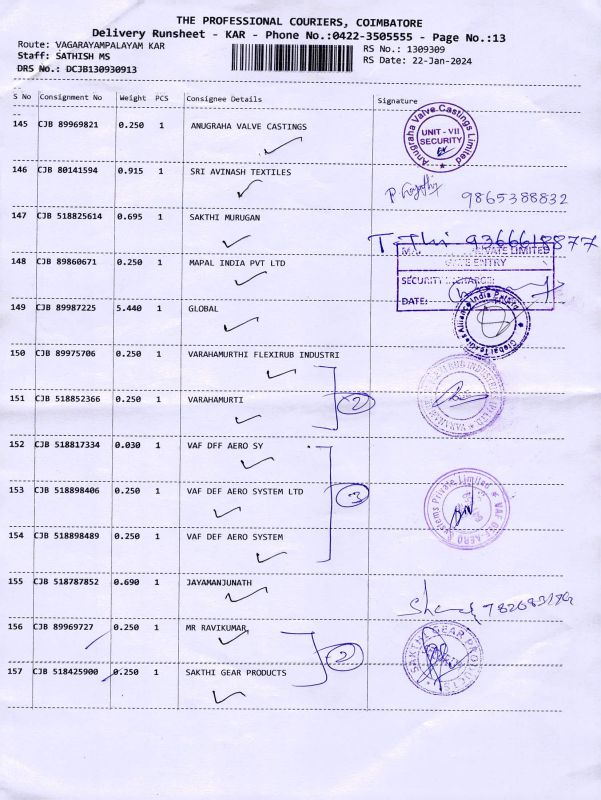 THE PROFESSIONAL COURIERS, COIMBATORE
Delivery Runsheet - KAR - Phone No.:0422-3505555 - Page No.:13
Route: VAGARAYAMPALAYAM KAR
RS No.: 1309309
Staff: SATHISH MS
RS Date: 22-Jan-2024
DRS No.: DCJB130930913
S No Consignment No Weight PCS Consignee Details Signature
145 CJB 89969821 0.250 1 ANUGRAHA VALVE CASTINGS
Anugraha Valve Castings Limited
UNIT - VII
SECURITY
146 CJB 80141594 0.915 1 SRI AVINASH TEXTILES
9865388832
147 CJB 518825614 0.695 1 SAKTHI MURUGAN
9366618877
148 CJB 89860671 0.250 1 MAPAL INDIA PVT LTD
PRIVATE LIMITED
ENTRY
SECURITY
DATE:
149 CJB 89987225 5.440 1 GLOBAL
150 CJB 89975706 0.250 1 VARAHAMURTHI FLEXIRUB INDUSTRI
151 CJB 518852366 0.250 1 VARAHAMURTI
2
152 CJB 518817334 0.030 1 VAF DFF AERO SY
153 CJB 518898406 0.250 1 VAF DEF AERO SYSTEM LTD
3
VAF DEF AERO Systems Private Limited
154 CJB 518898489 0.250 1 VAF DEF AERO SYSTEM
155 CJB 518787852 0.690 1 JAYAMANJUNATH
156 CJB 89969727 0.250 1 MR RAVIKUMAR,
2
SAKTHI GEAR PRODUCTS
157 CJB 518425900 0.250 1 SAKTHI GEAR PRODUCTS